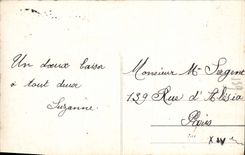 Un doux baiser
à tout deux
Suzanne
Monsieur Mr Sargent
139 Rue d'Alésia
Paris
XIV